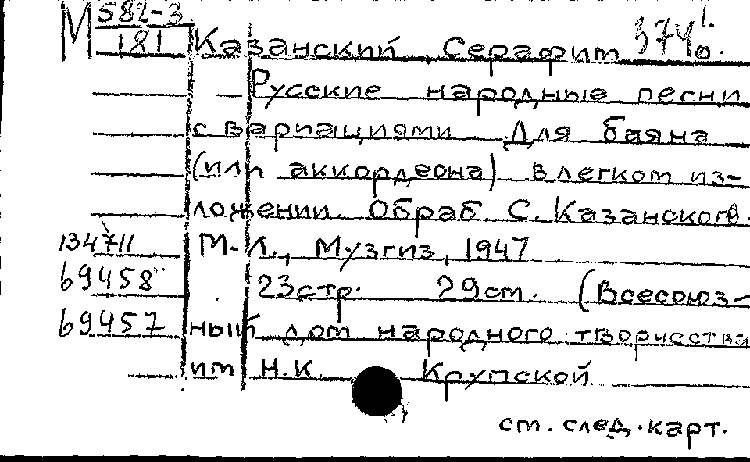 М 582-3
181
Казанский, Серафим
Русские народные песни
с вариациями для баяна
(или аккордеона) в легком из-
ложении. Обраб. С. Казанского.
134711 М.-Л., Музгиз, 1947
69458 23стр. 29см. (Всесоюз-
69457 ный дом народного творчества
им Н.К. Крупской
см. след. карт.